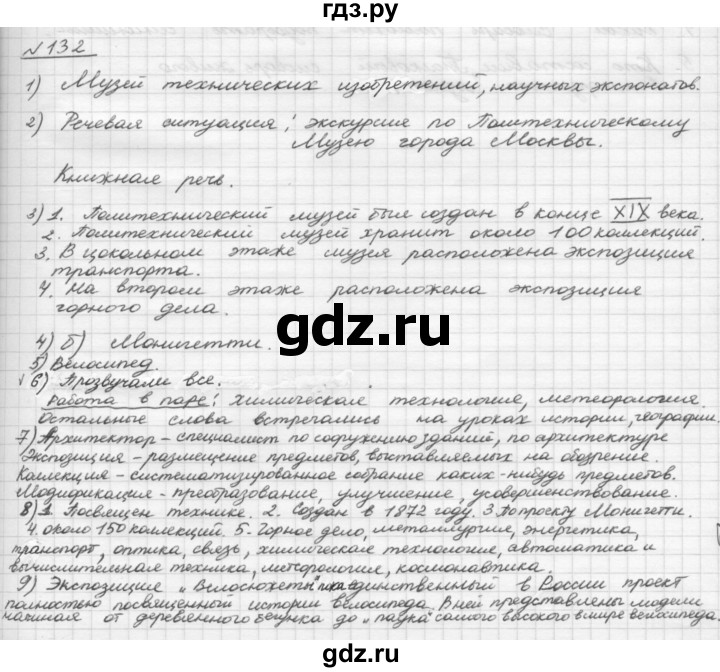 гдз.ру
№132
1) Музей технических изобретений, научных экспонатов.
2) Речевая ситуация: экскурсия по Политехническому
Музею города Москвы.
Книжная речь.
3) 1. Политехнический музей был создан в конце XIX века.
2. Политехнический музей хранит около 100 коллекций.
3. В цокольном этаже музея расположена экспозиция
транспорта.
4. На втором этаже расположена экспозиция
горного дела.
gdz.ru
4) б) Монигетти.
5) Велосипед.
6) Прозвучали все.
Работа в паре: химическая технология, метеорология.
Остальные слова встречались на уроках истории, географии.
7) Архитектор – специалист по сооружению зданий, по архитектуре
Экспозиция – размещение предметов, выставляемых на обозрение.
Коллекция – систематизированное собрание каких-нибудь предметов.
Модификация – преобразование, улучшение, усовершенствование.
8) 1. Посвящен технике. 2. Создан в 1872 году. 3. По проекту Монигетти.
4. около 150 коллекций. 5. Горное дело, металлургия, энергетика,
транспорт, оптика, связь, химическая технология, автоматика и
вычислительная техника, метеорология, космонавтика.
9) Экспозиция „Велосюжеты" единственный в России проект
полностью посвященный истории велосипеда. В ней представлены модели
начиная от деревянного бегунка до „паука" самого высокого в мире велосипеда.
gdz.ru